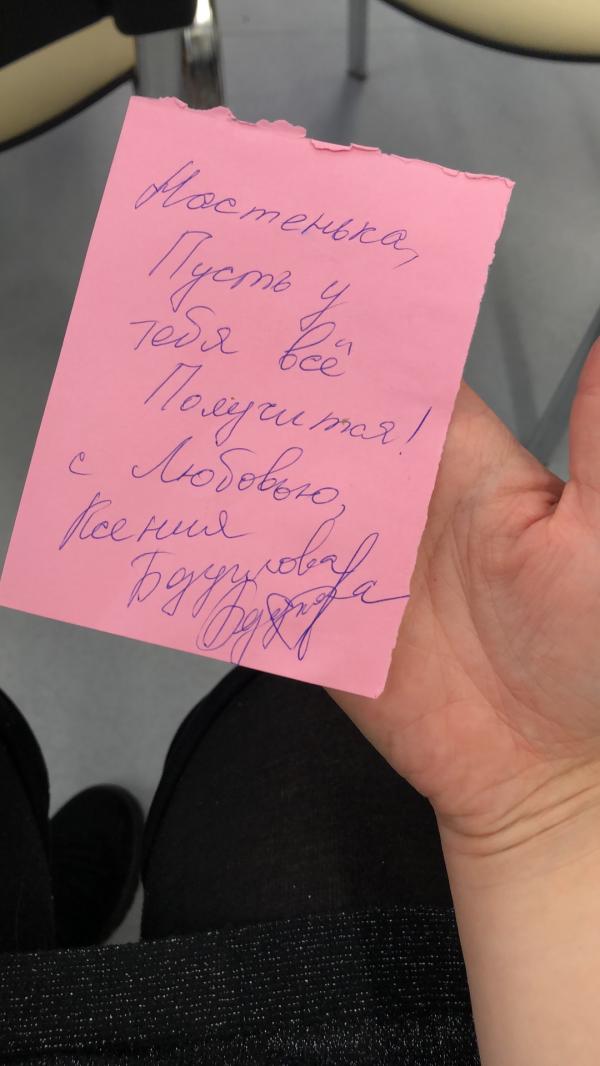 Настенька,
Пусть у
тебя всё
Получится!
с Любовью,
Ксения